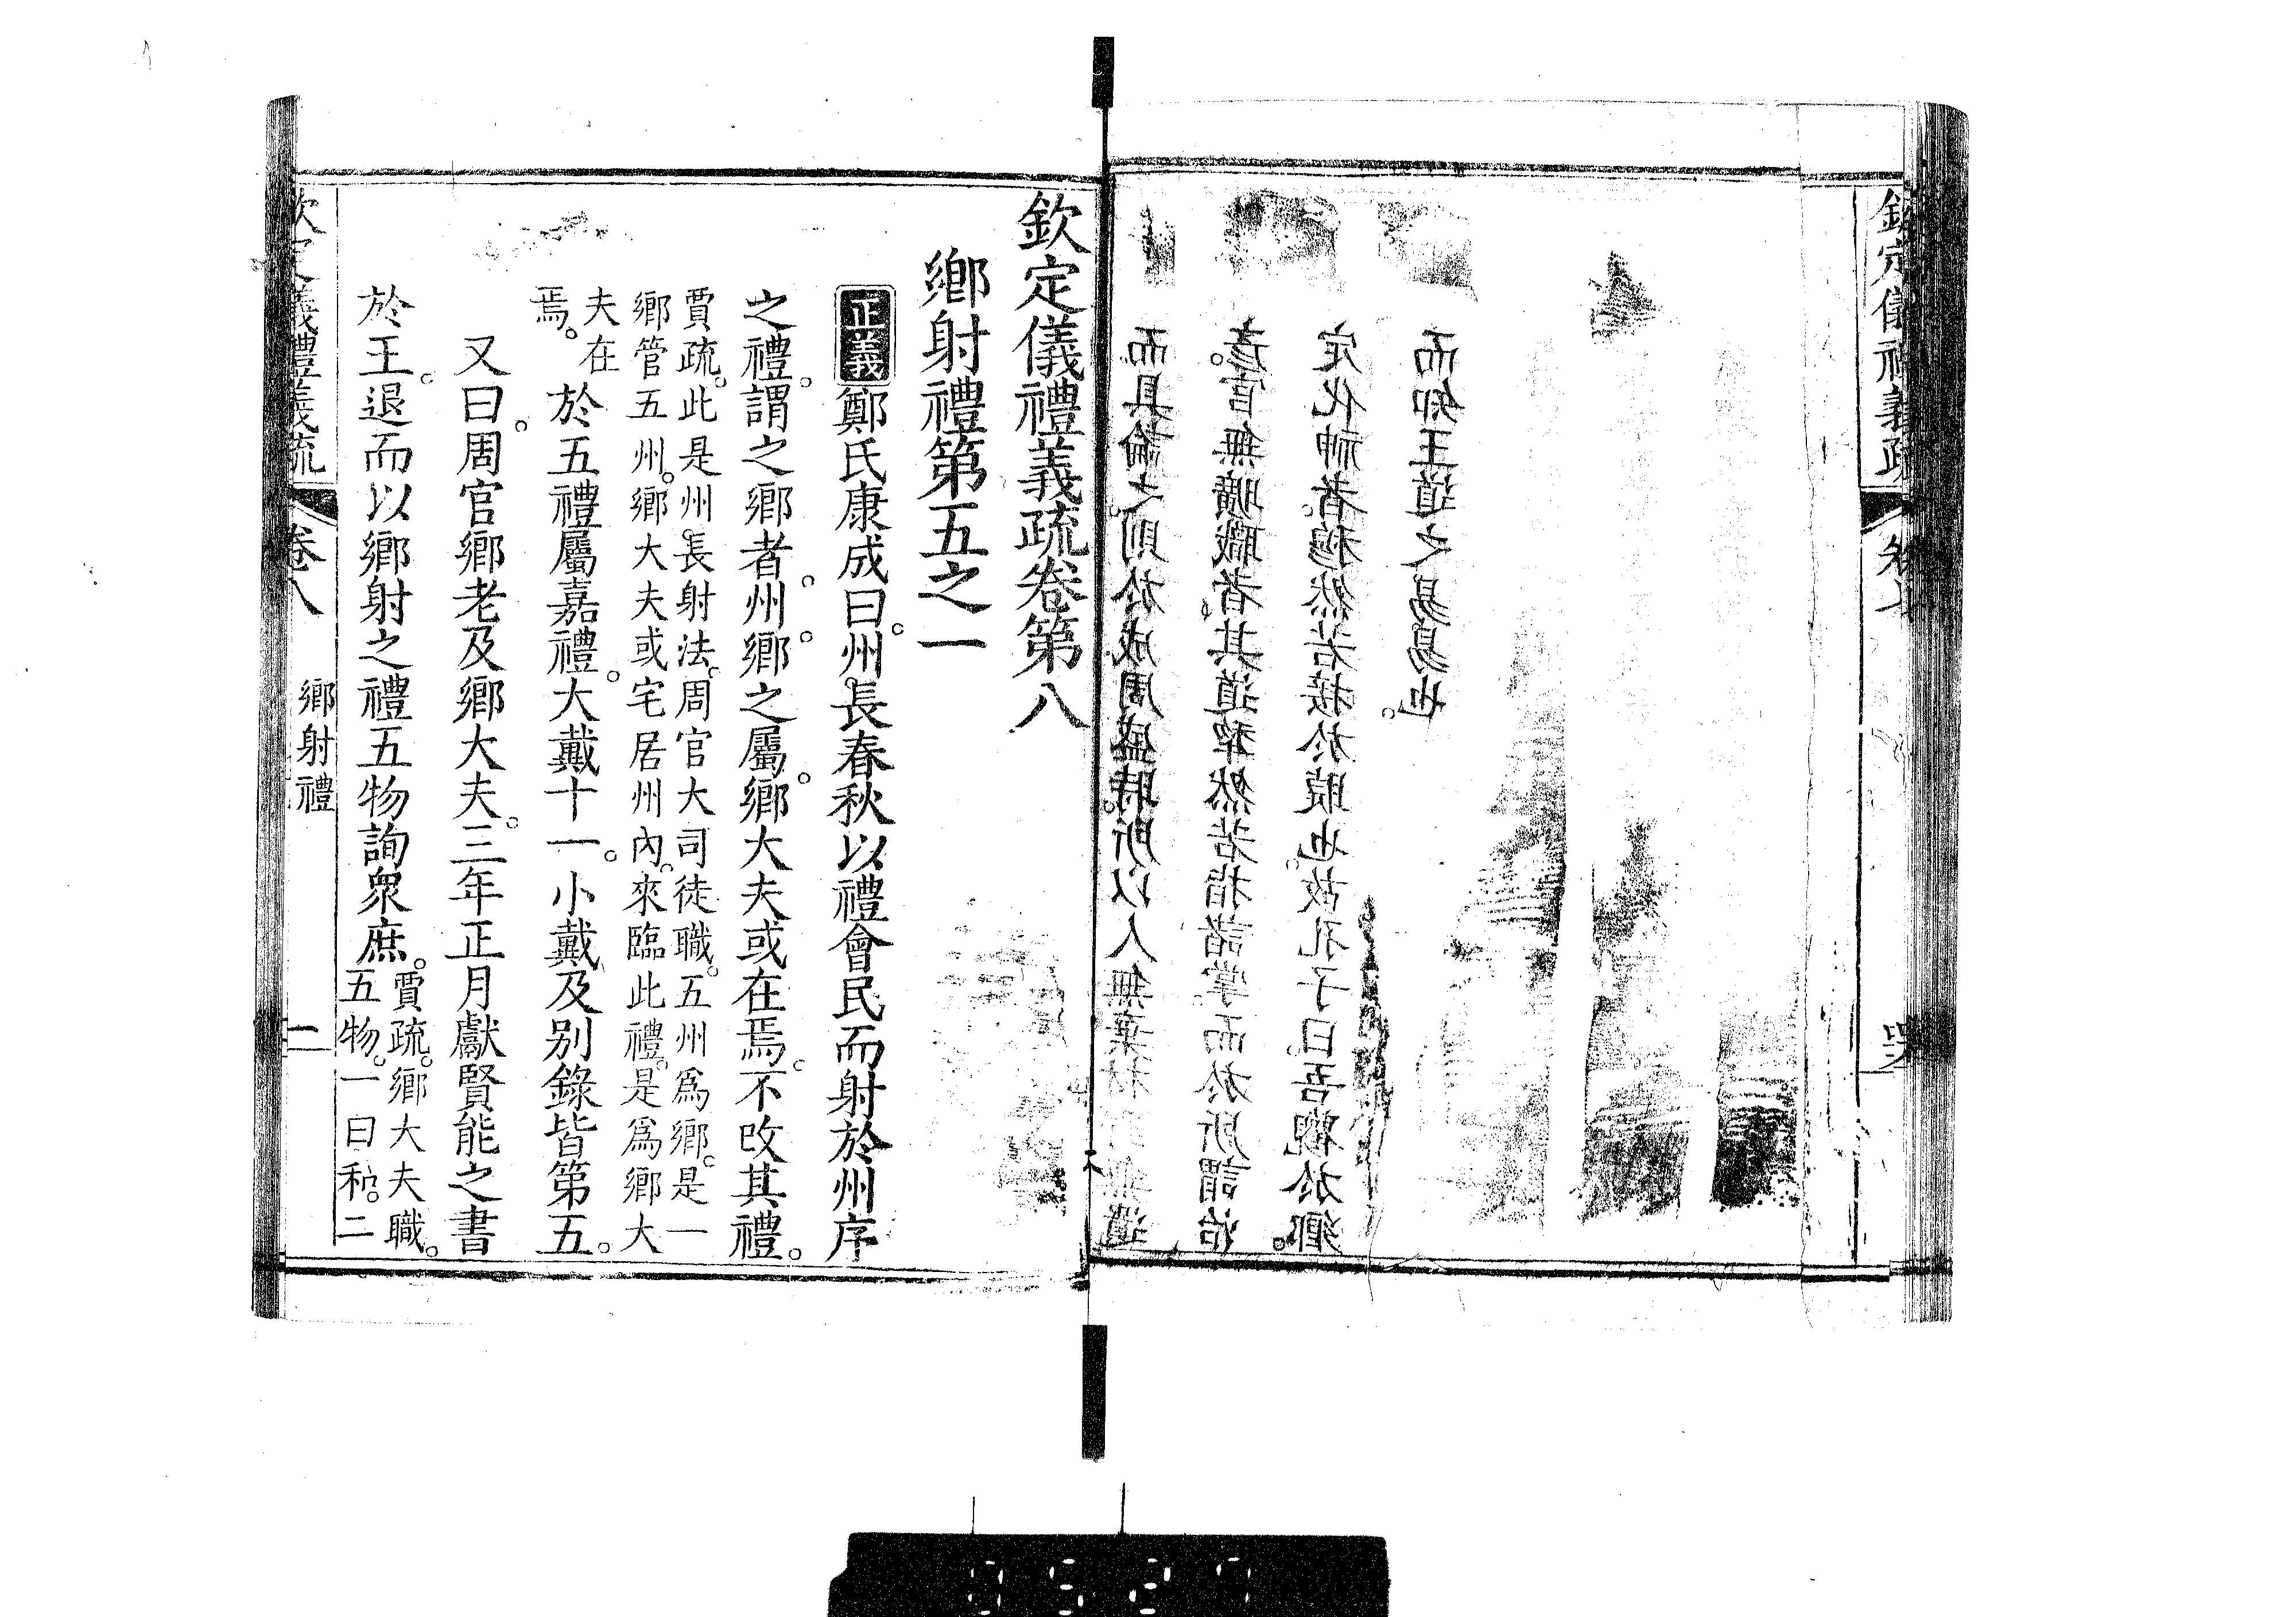 欽定儀禮義疏
而具論之則於成周盛時所以人無棄材 無遺
彥官無曠職者其道犂然若指諸掌而於所謂治
定化神者穆然若接於 也故孔子曰吾觀於鄉
而知王道之易易也
欽定儀禮義疏卷第八
鄉射禮第五之一
正義鄭氏康成曰州長春秋以禮會民而射於州序
之禮謂之鄉者州鄉之屬鄉大夫或在焉不改其禮
賈疏此是州長射法周官大司徒職五州為鄉是一
鄉管五州鄉大夫或宅居州內來臨此禮是為鄉大
夫在
焉
於五禮屬嘉禮大戴十一小戴及別錄皆第五
又曰周官鄉老及鄉大夫三年正月獻賢能之書
於王退而以鄉射之禮五物詢眾庶
賈疏鄉大夫職
五物一曰和二
欽定儀禮義疏 卷八 鄉射禮